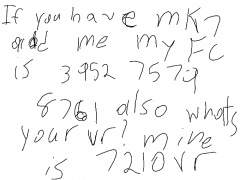 If you have mK7
add me my FC
is 3952 7579
8761 also whats
your vr? mine
is 7210vr